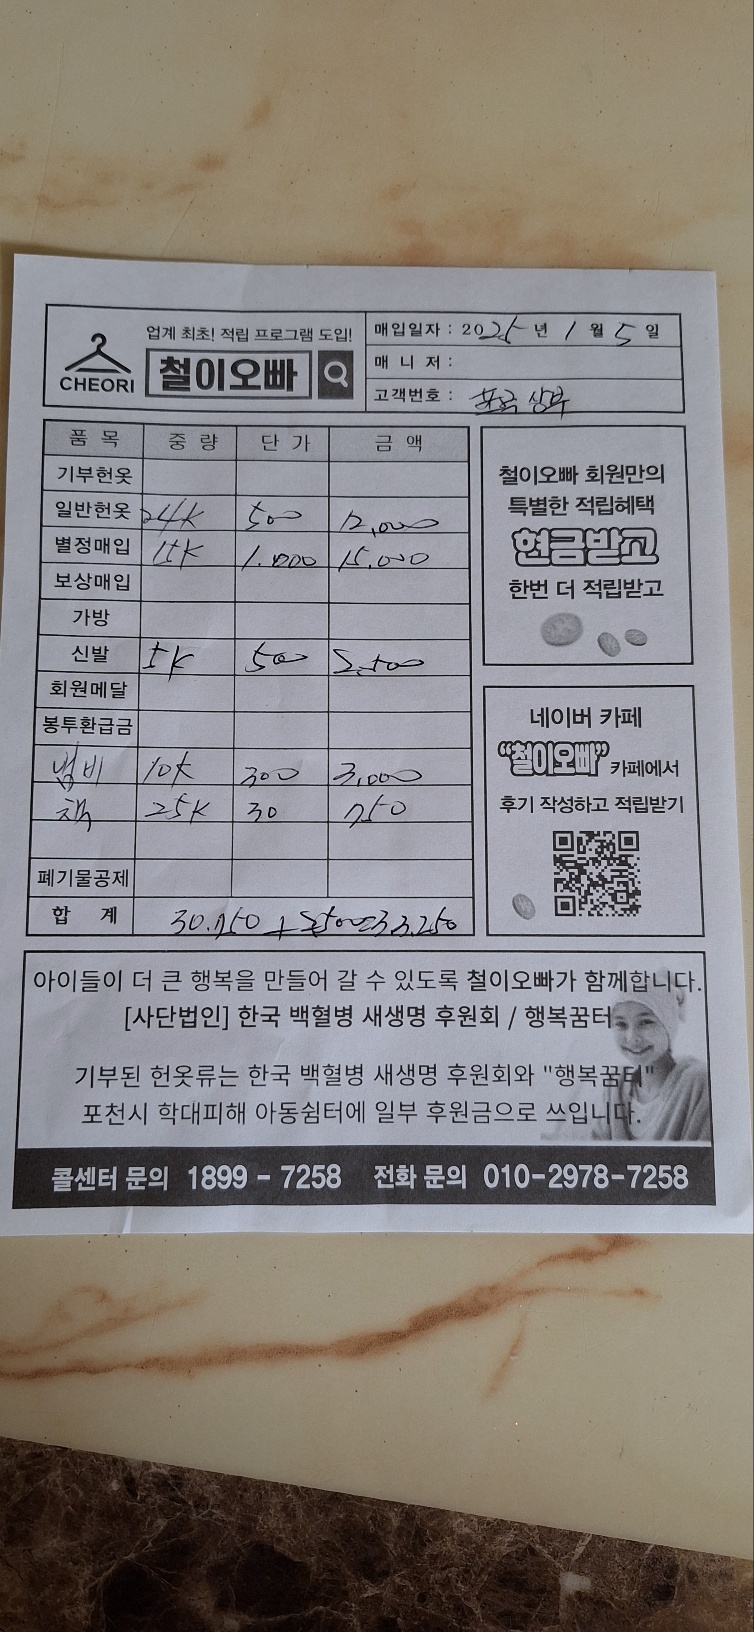 업계 최초! 적립 프로그램 도입!
CHEORI 철이오빠
매입일자 : 2025 년 1 월 5 일
매 니 저 :
고객번호 :
품 목 중 량 단 가 금 액
기부헌옷
일반헌옷 24K 500 12,000
별정매입 15K 1.000 15.000
보상매입
가방
신발 5K 500 2,500
회원메달
봉투환급금
냄비 10K 300 3,000
책 25K 30 750
폐기물공제
합 계 30.750 + 2,500=33.250
철이오빠 회원만의
특별한 적립혜택
현금받고
한번 더 적립받고
네이버 카페
"철이오빠" 카페에서
후기 작성하고 적립받기
아이들이 더 큰 행복을 만들어 갈 수 있도록 철이오빠가 함께합니다.
[사단법인] 한국 백혈병 새생명 후원회 / 행복꿈터
기부된 헌옷류는 한국 백혈병 새생명 후원회와 "행복꿈터"
포천시 학대피해 아동쉼터에 일부 후원금으로 쓰입니다.
콜센터 문의 1899 - 7258 전화 문의 010-2978-7258